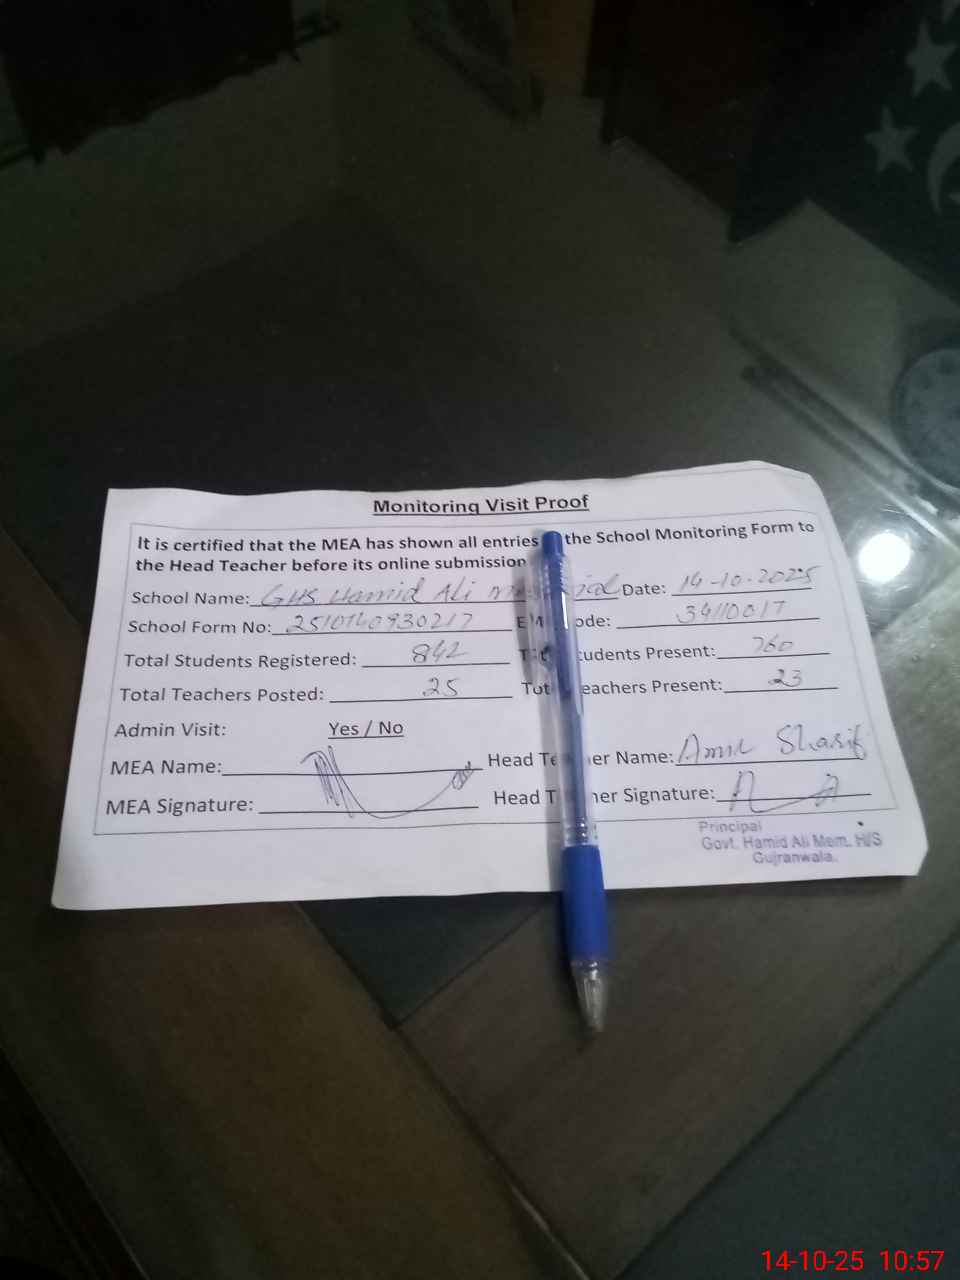 Monitoring Visit Proof
It is certified that the MEA has shown all entries the School Monitoring Form to
the Head Teacher before its online submission
School Name: GHS Hamid Ali Date: 14-10-2025
School Form No: 2510140930217 ode: 34110017
Total Students Registered: 842 udents Present: 760
Total Teachers Posted: 25 Tot eachers Present: 23
Admin Visit: Yes / No
MEA Name: Head Te er Name: Amir Sharif
MEA Signature: Head T her Signature:
Principal
Govt. Hamid Ali Mem. H/S
Gujranwala.
14-10-25 10:57